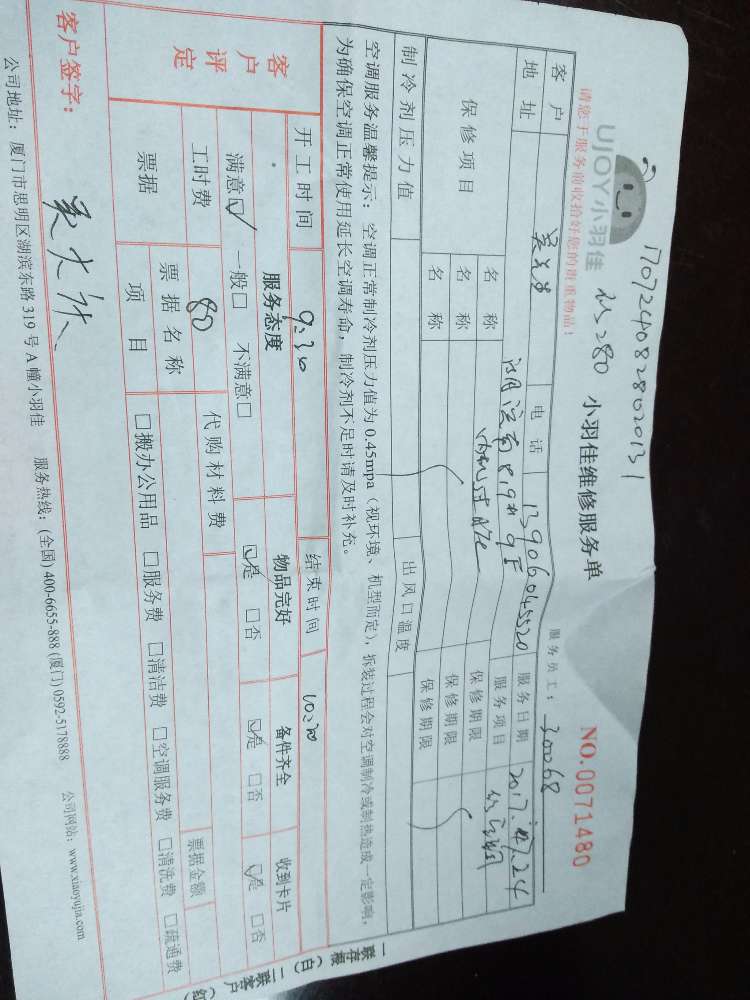 1707240828020131
UJOY小羽佳
280
小羽佳维修服务单
NO.0071480
请您于服务前收拾好您的贵重物品！
服务员工： 30068
客户 吴先生 电话 13906045520 服务日期 2017.7.24
地址 8.9# 9F 服务项目
保修项目 名称 保修期限
名称 保修期限
名称 保修期限
制冷剂压力值 出风口温度
空调服务温馨提示：空调正常制冷剂压力值为 0.45mpa（视环境、机型而定），拆装过程会对空调制冷或制热造成一定影响，
为确保空调正常使用延长空调寿命，制冷剂不足时请及时补充。
客户评定 开工时间 9:30 结束时间 10:30
服务态度 物品完好 备件齐全 收到卡片
满意☑ 一般□ 不满意□ ☑是 □否 ☑是 □否 ☑是 □否
工时费 80 代购材料费
票据 票据名称 票据金额
项目 □搬办公用品 □服务费 □清洁费 □空调服务费 □清洗费 □疏通费
客户签字：
公司地址：厦门市思明区湖滨东路 319 号 A 幢小羽佳 服务热线：(全国) 400-6655-888 (厦门) 0592-5178888 公司网站：www.xiaoyujia.com
一联存根（白）二联客户（红）